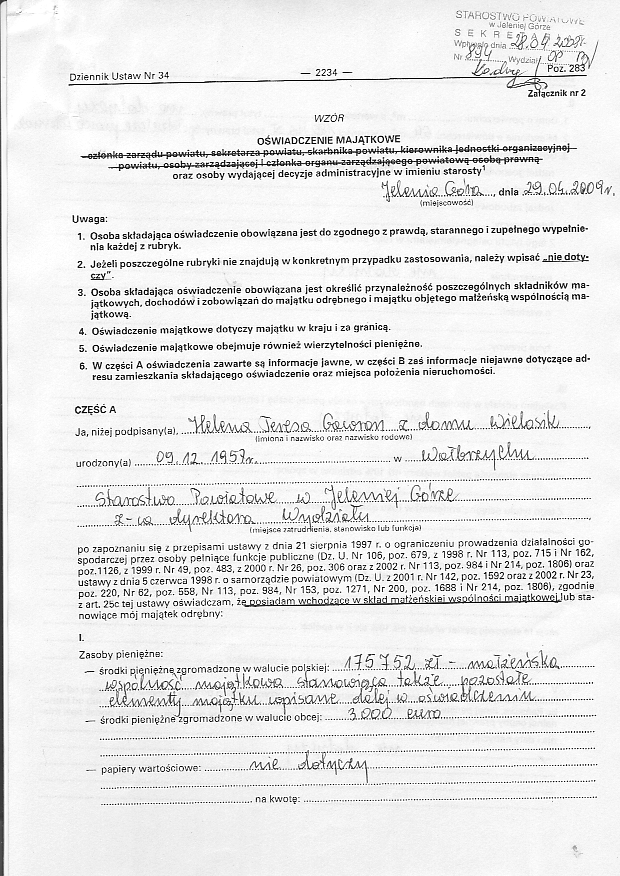 STAROSTWO POWIATOWE
w Jeleniej Górze
SEKRETARIAT
Wpłynęło dnia 28.04.2009r.
Nr 894 Wydział
Dziennik Ustaw Nr 34 — 2234 — Poz. 283
Załącznik nr 2
WZÓR
OŚWIADCZENIE MAJĄTKOWE
członka zarządu powiatu, sekretarza powiatu, skarbnika powiatu, kierownika jednostki organizacyjnej
powiatu, osoby zarządzającej i członka organu zarządzającego powiatową osobą prawną
oraz osoby wydającej decyzje administracyjne w imieniu starosty¹
Jelenia Góra, dnia 29.04.2009r.
(miejscowość)
Uwaga:
1. Osoba składająca oświadczenie obowiązana jest do zgodnego z prawdą, starannego i zupełnego wypełnie-
nia każdej z rubryk.
2. Jeżeli poszczególne rubryki nie znajdują w konkretnym przypadku zastosowania, należy wpisać „nie doty-
czy”.
3. Osoba składająca oświadczenie obowiązana jest określić przynależność poszczególnych składników ma-
jątkowych, dochodów i zobowiązań do majątku odrębnego i majątku objętego małżeńską wspólnością ma-
jątkową.
4. Oświadczenie majątkowe dotyczy majątku w kraju i za granicą.
5. Oświadczenie majątkowe obejmuje również wierzytelności pieniężne.
6. W części A oświadczenia zawarte są informacje jawne, w części B zaś informacje niejawne dotyczące ad-
resu zamieszkania składającego oświadczenie oraz miejsca położenia nieruchomości.
CZĘŚĆ A
Ja, niżej podpisany(a), Helena Teresa Gawron z domu Wielosik,
(imiona i nazwisko oraz nazwisko rodowe)
urodzony(a) 09.12.1957r. w Wałbrzychu
Starostwo Powiatowe w Jeleniej Górze
z-ca dyrektora Wydziału,
(miejsce zatrudnienia, stanowisko lub funkcja)
po zapoznaniu się z przepisami ustawy z dnia 21 sierpnia 1997 r. o ograniczeniu prowadzenia działalności go-
spodarczej przez osoby pełniące funkcje publiczne (Dz. U. Nr 106, poz. 679, z 1998 r. Nr 113, poz. 715 i Nr 162,
poz.1126, z 1999 r. Nr 49, poz. 483, z 2000 r. Nr 26, poz. 306 oraz z 2002 r. Nr 113, poz. 984 i Nr 214, poz. 1806) oraz
ustawy z dnia 5 czerwca 1998 r. o samorządzie powiatowym (Dz. U. z 2001 r. Nr 142, poz. 1592 oraz z 2002 r. Nr 23,
poz. 220, Nr 62, poz. 558, Nr 113, poz. 984, Nr 153, poz. 1271, Nr 200, poz. 1688 i Nr 214, poz. 1806), zgodnie
z art. 25c tej ustawy oświadczam, że posiadam wchodzące w skład małżeńskiej wspólności majątkowej lub sta-
nowiące mój majątek odrębny:
I.
Zasoby pieniężne:
— środki pieniężne zgromadzone w walucie polskiej: 175752 zł - małżeńska
wspólność majątkowa stanowiąca także pozostałe
elementy majątku wpisane dalej w oświadczeniu
— środki pieniężne zgromadzone w walucie obcej: 3.000 euro
— papiery wartościowe: nie dotyczy
na kwotę: